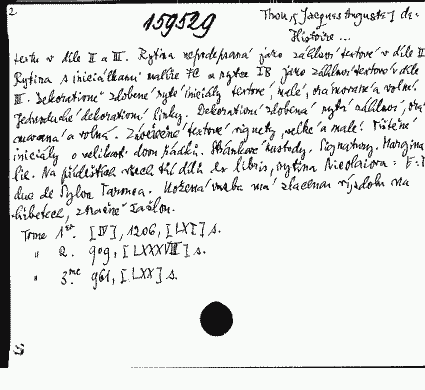 2
159529
Thou, Jacques Auguste de:
Histoire ...
textu v díle II a III. Rytina nepodepsaná jako záhlaví textové v díle II
Rytina s iniciálkami malíře FC a rytce IB jako záhlaví textové v díle
III. Dekorativně zdobené ryté iniciály textové, malé, orámované a volné.
Jednoduché dekorativní linky. Dekorativní zdobená rytá záhlaví, orá-
movaná a volná. Závěrečné textové vignety, velké a malé. Tištěné
iniciály o velikosti dvou řádků. Stránkové kustody. Signatury. Margina-
lie. Na přídeštích všech tří dílů ex libris, rytina
duc de Kožená vazba má zlacenou výzdobu na
hřbetech, ztracené
Tome 1er. [IV], 1206, [LXI] s.
" 2. 909, [LXXXVIII] s.
" 3me 961, [LXX] s.
S